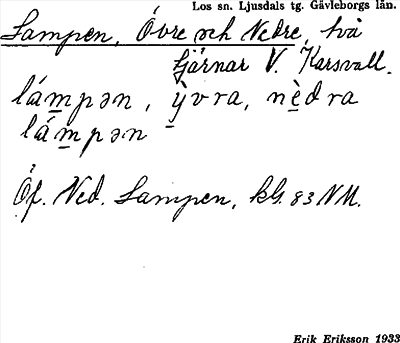 Los sn. Ljusdals tg. Gävleborgs län.
Lampen, Övre och Nedre, två
tjärnar V. Karsvall.
lámpən, ỳvra, nèdra
lámpən
Öf. Ned. Lampen, kbl. 83 NM.
Erik Eriksson 1933